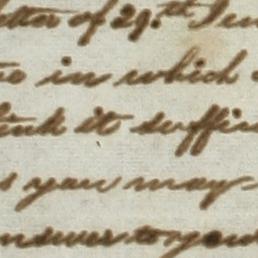 etter of 29.th Jun
e in which
ink it suffic
s you may
nswer to your